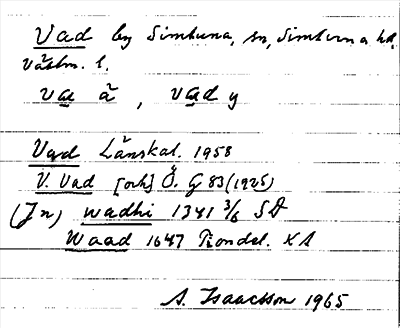 Vad by Simtuna, sn, Simtuna hd,
Västm. l.
va̲e̲ ǎ, va̲d y
Vad Länskal. 1958
V. Vad [och] Ö. G 83 (1925)
(Jn) wadhi 1341 3/6 SD
Waad 1647 Tiondel. KA
A. Isaacsson 1965